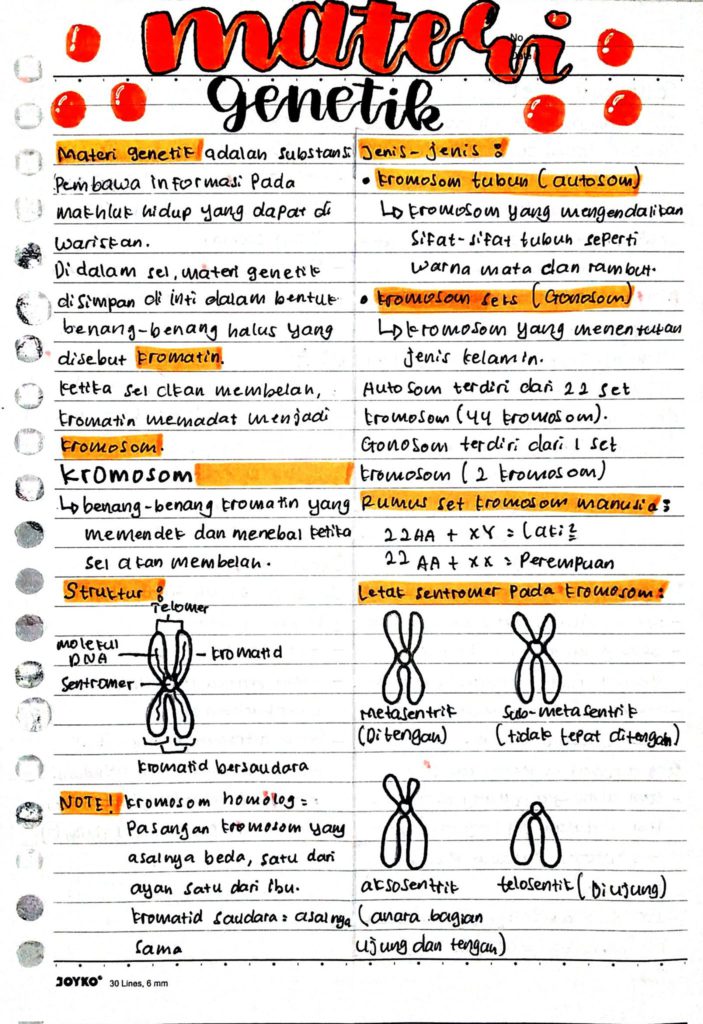 materi
No
Date
genetik
Materi genetik adalah substansi
Pembawa informasi Pada
makhluk hidup yang dapat di
wariskan.
Di dalam sel, materi genetik
disimpan di inti dalam bentuk
benang-benang halus yang
disebut kromatin.
ketika sel akan membelah,
kromatin memadat menjadi
kromosom.
kromosom
↳ benang-benang kromatin yang
memendek dan menebal ketika
sel akan membelah.
Struktur :
Telomer
molekul
DNA
kromatid
Sentromer
kromatid bersaudara
NOTE! kromosom homolog =
Pasangan kromosom yang
asalnya beda, satu dari
ayah satu dari Ibu.
kromatid saudara = asalnya
sama
Jenis-jenis :
• kromosom tubuh (autosom)
↳ kromosom yang mengendalikan
Sifat-sifat tubuh seperti
warna mata dan rambut.
• kromosom seks (Gonosom)
↳ kromosom yang menentukan
jenis kelamin.
Autosom terdiri dari 22 set
kromosom (44 kromosom).
Gonosom terdiri dari 1 set
kromosom (2 kromosom)
Rumus set kromosom manusia :
22AA + XY = Laki2
22 AA + XX = Perempuan
Letak sentromer Pada kromosom :
metasentrik
(Ditengah)
Sub-metasentrik
(tidak tepat ditengah)
aksosentrik
(anara bagian
ujung dan tengah)
telosentik (Diujung)
JOYKO® 30 Lines, 6 mm